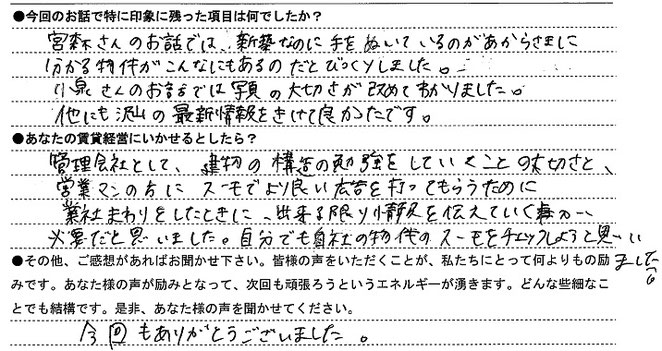 ●今回のお話で特に印象に残った項目は何でしたか？
宮森さんのお話では、新築なのに手をぬいているのがあからさまに
分かる物件がこんなにもあるのだとびっくりしました。
小泉さんのお話では写真の大切さが改めてわかりました。
他にも沢山の最新情報をきけて良かったです。
●あなたの賃貸経営にいかせるとしたら？
管理会社として、建物の構造の勉強をしていくことの大切さと、
営業マンの方にスーモでより良い広告を打ってもらうために
業社まわりをしたときに、出来る限り情報を伝えていく事が
必要だと思いました。自分でも自社の物件のスーモをチェックしようと思い
ました。
●その他、ご感想があればお聞かせ下さい。皆様の声をいただくことが、私たちにとって何よりもの励
みです。あなた様の声が励みとなって、次回も頑張ろうというエネルギーが湧きます。どんな些細なこ
とでも結構です。是非、あなた様の声を聞かせてください。
今回もありがとうございました。